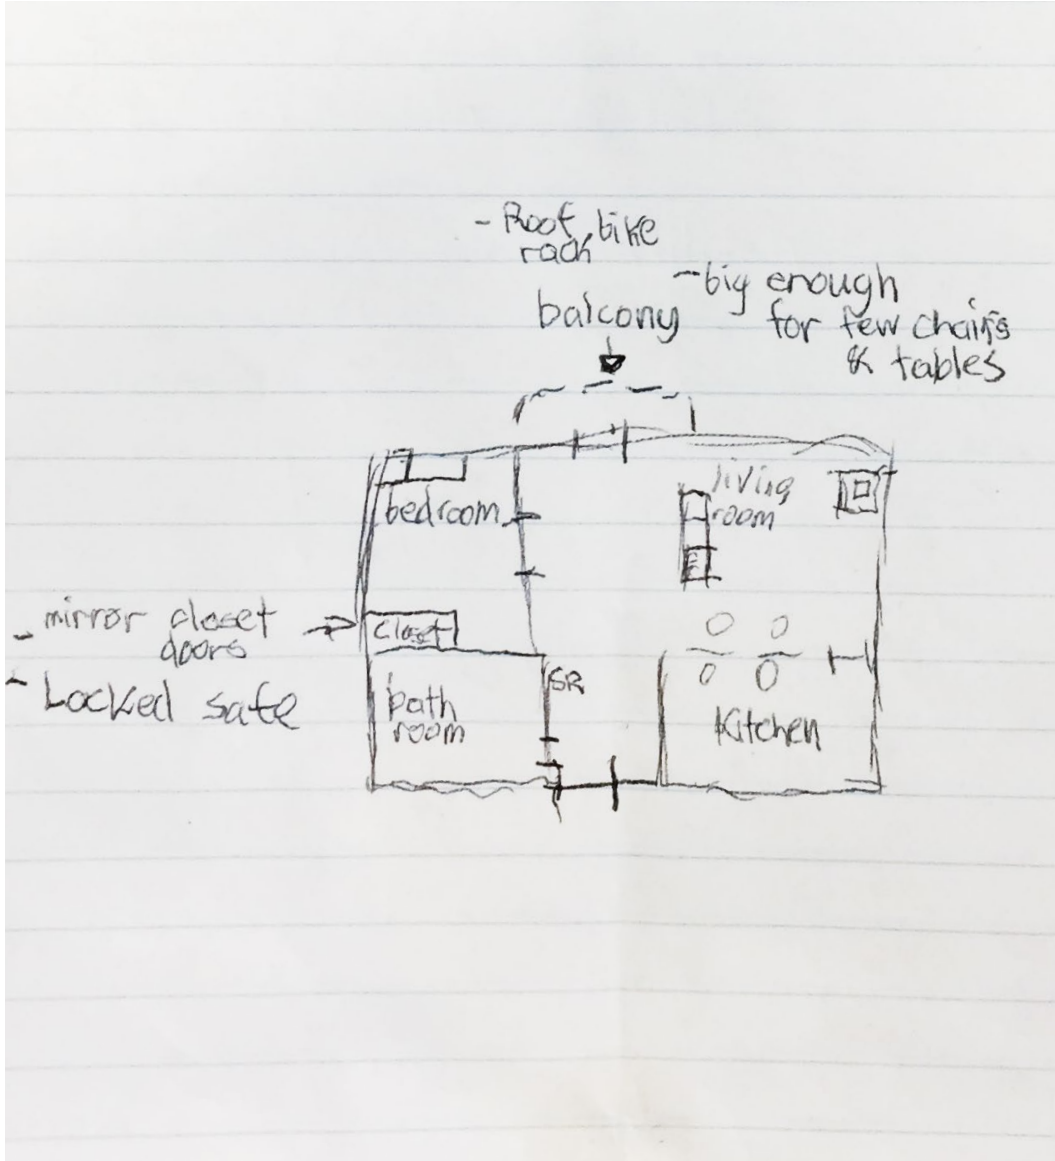 - Roof bike
rack
- big enough
for few chairs
& tables
balcony
living
room
bedroom
- mirror closet
doors
closet
- Locked safe
SR
bath
room
Kitchen